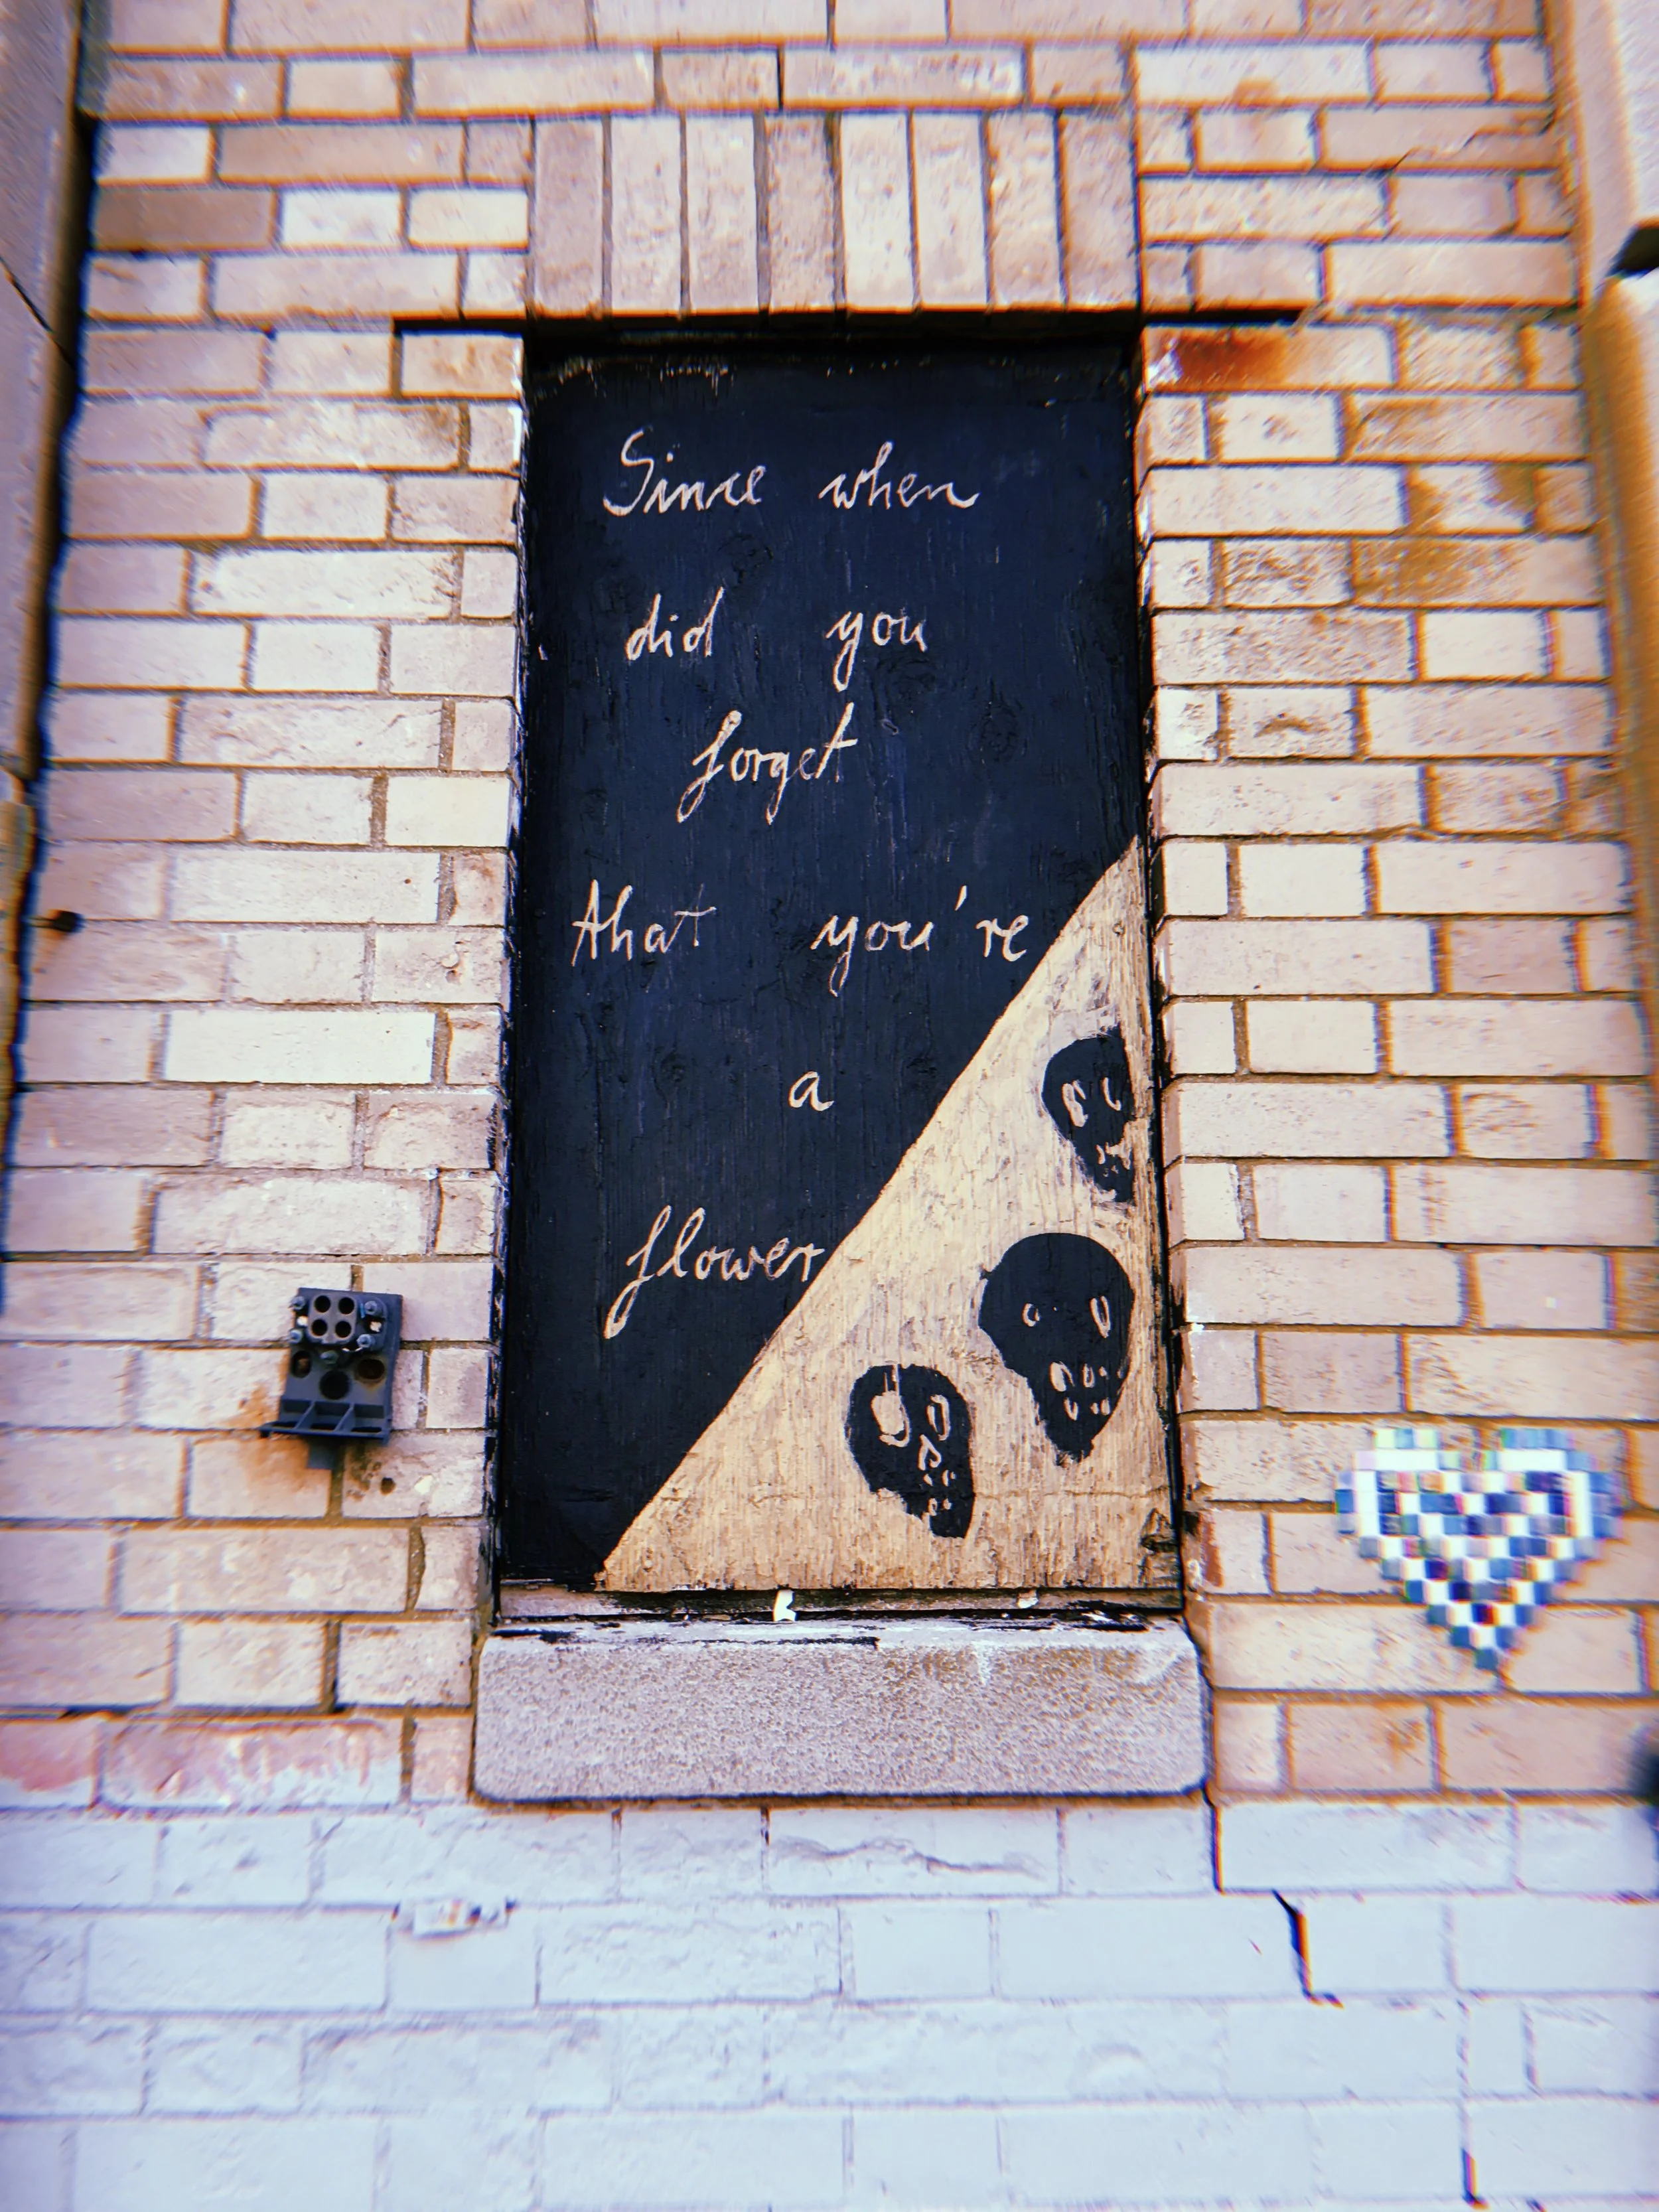 Since when
did you
forget
that you're
a
flower